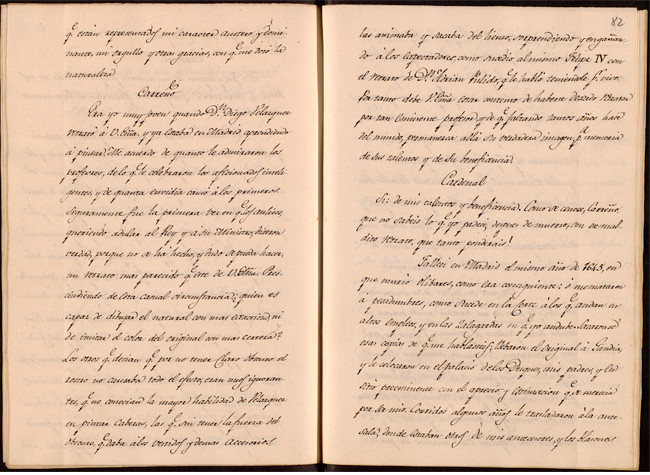 q.e están representados mi caracter austero, y domi-
nante, mi orgullo y otras gracias, con q.e me doró la
naturaleza
Carreño
Era yo muy joven quando D.n Diego Velazquez
retrató á V. Ema. y ya estaba en Madrid aprendiendo
á pintar. Me acuerdo de quanto le admiraron los
profesores, de lo q.e le celebraron los aficionados inteli-
gentes, y de quanta envidia causó á los primeros.
Seguramente fue la primera vez en q.e los
queriendo adular al Rey y á su Ministro, dixeron
verdad, porque no se ha hecho, y dudo se pueda hacer,
un retrato mas parecido q.e este de V. Ema. Pres-
cindiendo de esta casual circunstancia ¿quien es
capaz de dibujar el natural con mas exactitud, ni
de imitar el color del original con mas certeza?
Los otros q.e decian q.e por no tener claro obscuro el
rostro no causaba todo el efecto, eran unos ignoran-
tes, q.e no conocian la mayor habilidad de Velazquez
en pintar Cabezas, las q.e sin tener la fuerza del
obscuro, q.e daba á los vestidos y demas accesorios
82
las animaba y sacaba del lienzo, sorprendiendo y engañan-
do á los espectadores, como sucedió al mismo Felipe IV con
el retrato de D.n Adrian Pulido, q.e le habló teniendole p.r vivo.
Por tanto debe V. Ema. estar contento de haberse dexado retratar
por tan eminente profesor, y de q.e faltando tantos años hace
del mundo, permanezca allá su verdadera imagen, p.a memoria
de sus talentos y de su beneficencia.
Cardenal
Si: de mis talentos y beneficencia. Como se conoce, Carreño,
que no sabeis lo q.e yo padeci, despues de muerto, con ese mal-
dito retrato, que tanto ponderais!
Fallecí en Madrid el mismo año de 1645, en
que murió Olibares, como era consiguiente: ó me mataron
á pesadumbres, como sucede en la Corte á los q.e andan en
altos empleos, y en las zalagardas en q.e yo anduve. Hicieron
esas copias de q.e me hablasteis; llebaron el original á Gandia,
y le colocaron en el palacio de los Duques, mis padres, y en
sitio preeminente con el aprecio y estimacion q.e merecia
por ser mio. Corridos algunos años le trasladaron á la ante-
sala, donde estaban otros de mis antecesores, y los blasones